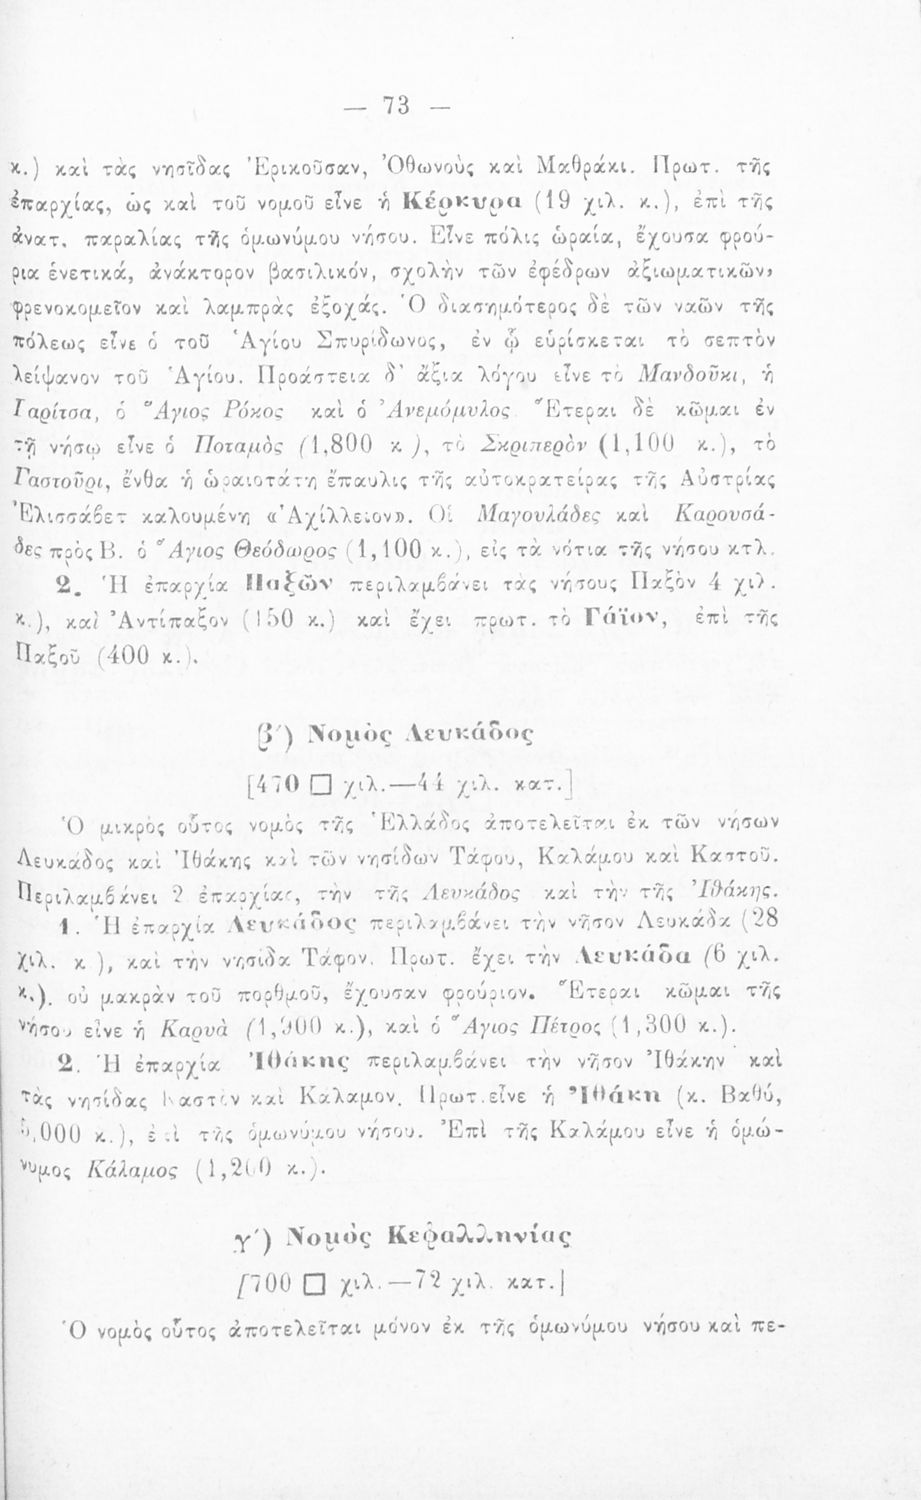 — 73 —
κ.) καὶ τὰς νησῖδας Ἐρικοῦσαν, Ὀθωνοὺς καὶ Μαθράκι. Πρωτ. τῆς
ἐπαρχίας, ὡς καὶ τοῦ νομοῦ εἶνε ἡ Κέρκυρα (19 χιλ. κ.), ἐπὶ τῆς
ἀνατ. παραλίας τῆς ὁμωνύμου νήσου. Εἶνε πόλις ὡραία, ἔχουσα φρού-
ρια ἑνετικά, ἀνάκτορον βασιλικόν, σχολὴν τῶν ἐφέδρων ἀξιωματικῶν,
φρενοκομεῖον καὶ λαμπρὰς ἐξοχάς. Ὁ διασημότερος δὲ τῶν ναῶν τῆς
πόλεως εἶνε ὁ τοῦ Ἁγίου Σπυρίδωνος, ἐν ᾧ εὑρίσκεται τὸ σεπτὸν
λείψανον τοῦ Ἁγίου. Προάστεια δ' ἄξια λόγου εἶνε τὸ Μανδοῦκι, ἡ
Γαρίτσα, ὁ Ἅγιος Ρόκος καὶ ὁ Ἀνεμόμυλος. Ἕτεραι δὲ κῶμαι ἐν
τῇ νήσῳ εἶνε ὁ Ποταμὸς (1,800 κ.), τὸ Σκριπερὸν (1,100 κ.), τὸ
Γαστοῦρι, ἔνθα ἡ ὡραιοτάτη ἔπαυλις τῆς αὐτοκρατείρας τῆς Αὐστρίας
Ἐλισσάβετ καλουμένη «Ἀχίλλειον». Οἱ Μαγουλάδες καὶ Καρουσά-
δες πρὸς Β. ὁ Ἅγιος Θεόδωρος (1,100 κ.), εἰς τὰ νότια τῆς νήσου κτλ.
2. Ἡ ἐπαρχία Παξῶν περιλαμβάνει τὰς νήσους Παξὸν 4 χιλ.
κ.), καὶ Ἀντίπαξον (150 κ.) καὶ ἔχει πρωτ. τὸ Γάϊον, ἐπὶ τῆς
Παξοῦ (400 κ.).
β') Νομὸς Λευκάδος
[470 □ χιλ.—44 χιλ. κατ.]
Ὁ μικρὸς οὗτος νομὸς τῆς Ἑλλάδος ἀποτελεῖται ἐκ τῶν νήσων
Λευκάδος καὶ Ἰθάκης καὶ τῶν νησίδων Τάφου, Καλάμου καὶ Καστοῦ.
Περιλαμβάνει 2 ἐπαρχίας, τὴν τῆς Λευκάδος καὶ τὴν τῆς Ἰθάκης.
1. Ἡ ἐπαρχία Λευκάδος περιλαμβάνει τὴν νῆσον Λευκάδα (28
χιλ. κ.), καὶ τὴν νησῖδα Τάφον. Πρωτ. ἔχει τὴν Λευκάδα (6 χιλ.
κ.), οὐ μακρὰν τοῦ πορθμοῦ, ἔχουσαν φρούριον. Ἕτεραι κῶμαι τῆς
νήσου εἶνε ἡ Καρυὰ (1,900 κ.), καὶ ὁ Ἅγιος Πέτρος (1,300 κ.).
2. Ἡ ἐπαρχία Ἰθάκης περιλαμβάνει τὴν νῆσον Ἰθάκην καὶ
τὰς νησίδας Καστὸν καὶ Κάλαμον. Πρωτ. εἶνε ἡ Ἰθάκη (κ. Βαθύ,
5,000 κ.), ἐπὶ τῆς ὁμωνύμου νήσου. Ἐπὶ τῆς Καλάμου εἶνε ἡ ὁμώ-
νυμος Κάλαμος (1,200 κ.).
γ') Νομὸς Κεφαλληνίας
[700 □ χιλ.—72 χιλ. κατ.]
Ὁ νομὸς οὗτος ἀποτελεῖται μόνον ἐκ τῆς ὁμωνύμου νήσου καὶ πε-